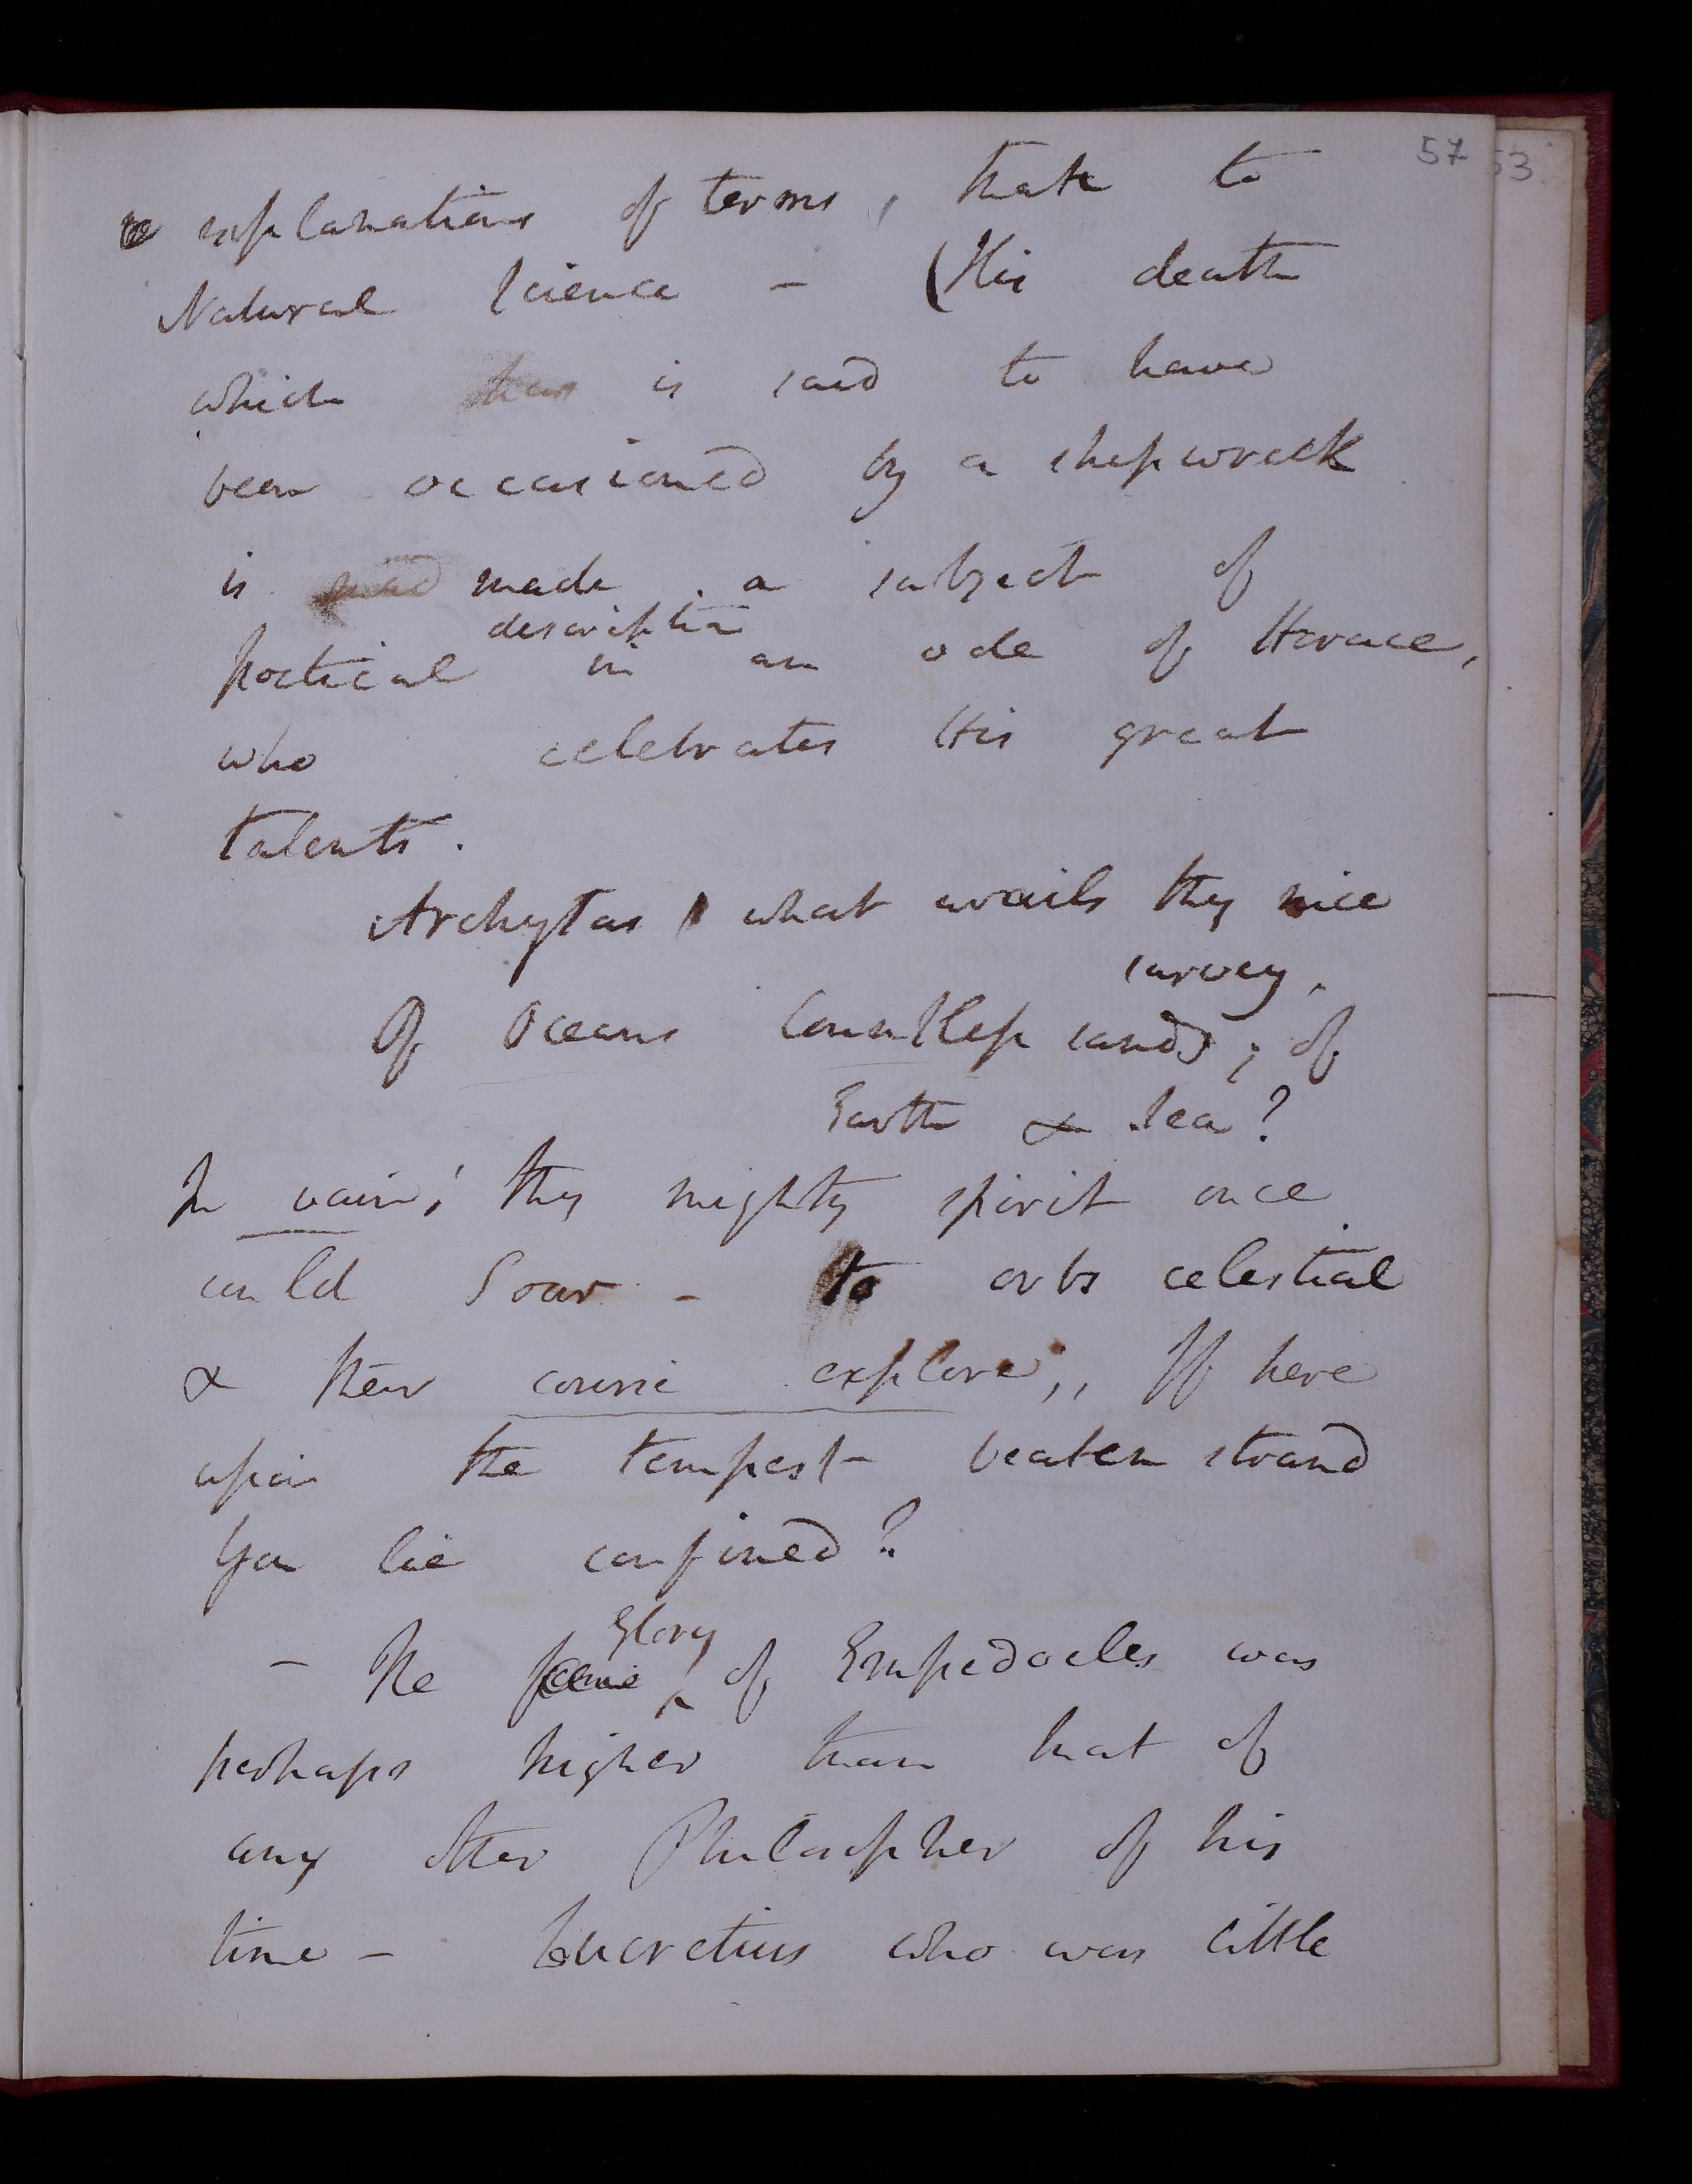 57
53
explanations of terms, than to
Natural Science - (His death
which has is said to have
been occasioned by a shipwreck
is made a subject of
description
poetical in an ode of Horace,
who celebrates His great
talents.
Archytas what avails thy nice
survey,
Of Oceans Countless sands; of
Earth & Sea?
In vain; thy mighty spirit once
could Soar - to orbs celestial
& their course explore,, If here
upon the tempest- beaten strand
You lie confined?
Glory
- The fame of Empedocles was
perhaps higher than that of
any other Philosopher of his
time - Lucretius who was little